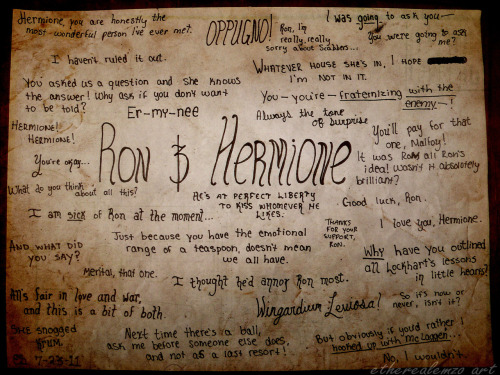 Hermione, you are honestly the
most wonderful person I've ever met.
OPPUGNO!
Ron, I'm
really, really
sorry about Scabbers...
I was going to ask you—
You were going to ask
me?
I haven't ruled it out.
WHATEVER HOUSE SHE'S IN, I HOPE
I'M NOT IN IT.
You asked us a question and she knows
the answer! Why ask if you don't want
to be told?
You—you're—fraternizing with the
enemy—!
Er-my-nee
Always the tone
of surprise
HERMIONE!
HERMIONE!
You'll pay for that
one, Malfoy!
RON & HERMIONE
You're okay...
It was Ron all Ron's
idea! Wasn't H absolutely
brilliant?
What do you think about all this?
HE'S AT PERFECT LIBERTY
TO KISS WHOMEVER HE
LIKES.
Good luck, Ron.
I am sick of Ron at the moment...
THANKS
FOR YOUR
SUPPORT,
RON.
I love you, Hermione.
Just because you have the emotional
range of a teaspoon, doesn't mean
we all have.
AND WHAT DID
YOU SAY?
Why have you outlined
all Lockhart's lessons
in little hearts?
Mental, that one.
I thought he'd annoy Ron most.
All's fair in love and war,
and this is a bit of both.
Wingardium Leviosa!
So it's now or
never, isn't it?
SHE SNOGGED
KRUM.
Next time there's a ball,
ask me before someone else does,
and not as a last resort!
But obviously if you'd rather I
hooked up with McLaggen...
7-23-11
No, I wouldn't.
etherealemzo art